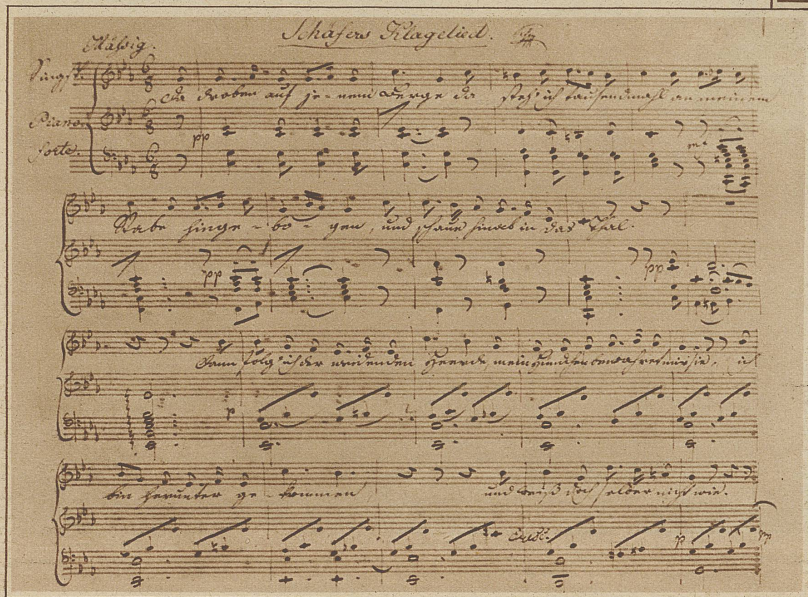 Schäfers Klagelied.
Mäßig.
Singst.
Da droben auf je-nem Berge da steh' ich tausendmahl an meinem
Piano
forte.
pp
Stabe hinge-bo-gen, und schaue hinab in das Thal.
pp
pp
Dann folg' ich der weidenden Heerde, mein Hündchen bewahret mir sie, ich
p
bin herunter ge-kommen und weiß doch selber nicht wie.
p
pp